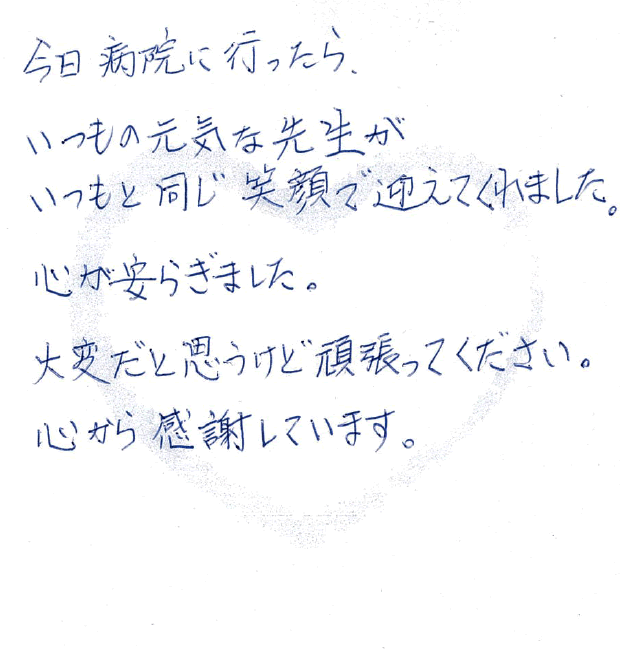 今日病院に行ったら、
いつもの元気な先生が
いつもと同じ笑顔で迎えてくれました。
心が安らぎました。
大変だと思うけど頑張ってください。
心から感謝しています。